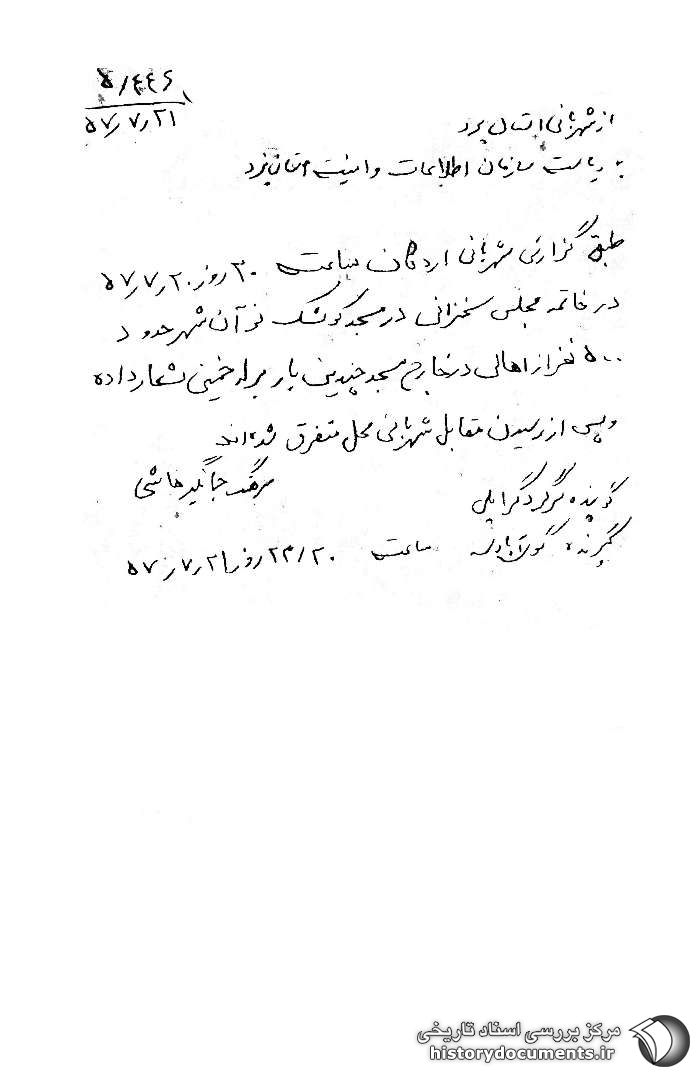 ۵/۴۴۶
۵۷/۷/۲۱
از شهربانی استان یزد
به ریاست سازمان اطلاعات و امنیت استان یزد
طبق گزارش شهربانی اردکان ساعت روز ۵۷/۷/۲۰
در خاتمه مجلس سخنرانی در مسجد کوشک نو آن شهر حدود
۵۰۰ نفر از اهالی در خارج مسجد چندین بار برله خمینی شعار داده
و پس از رسیدن مقابل شهربانی محل متفرق شده‌اند
گوینده سرگرد گرایلی
گیرنده ساعت ۲۳/۲۰ روز ۵۷/۷/۲۱
مرکز بررسی اسناد تاریخی
historydocuments.ir